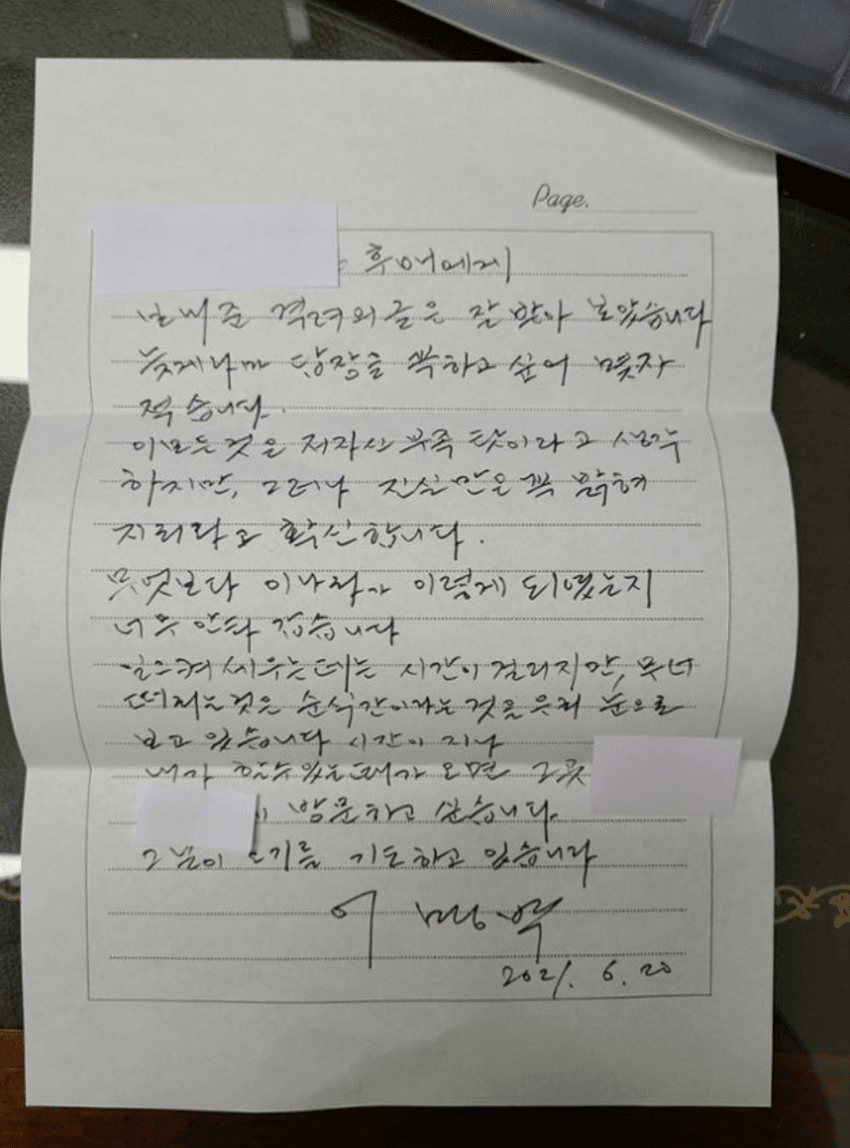 Page.
후배에게
보내준 격려의 글은 잘 받아 보았습니다
늦게나마 답장을 꼭하고 싶어 몇자
적습니다.
이모든것은 저자신 부족 탓이라고 생각
하지만, 그러나 진실만은 꼭 밝혀
지리라고 확신합니다.
무엇보다 이나라가 이렇게 되였는지
너무 안타 깝습니다
일으켜 세우는데는 시간이 걸리지만, 무너
떠리는것은 순식간이라는 것을 우리 눈으로
보고 있습니다 시간이 지나
내가 할수있는때가 오면 그곳
방문하고 싶습니다.
그날이 오기를 기도하고 있습니다
이명박
2021. 6. 20